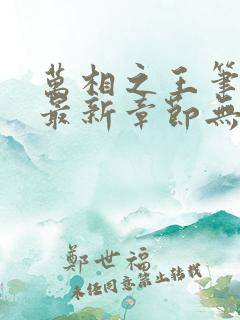 萬相之王筆
最新章節無
鄭世福
未經同意禁止轉載